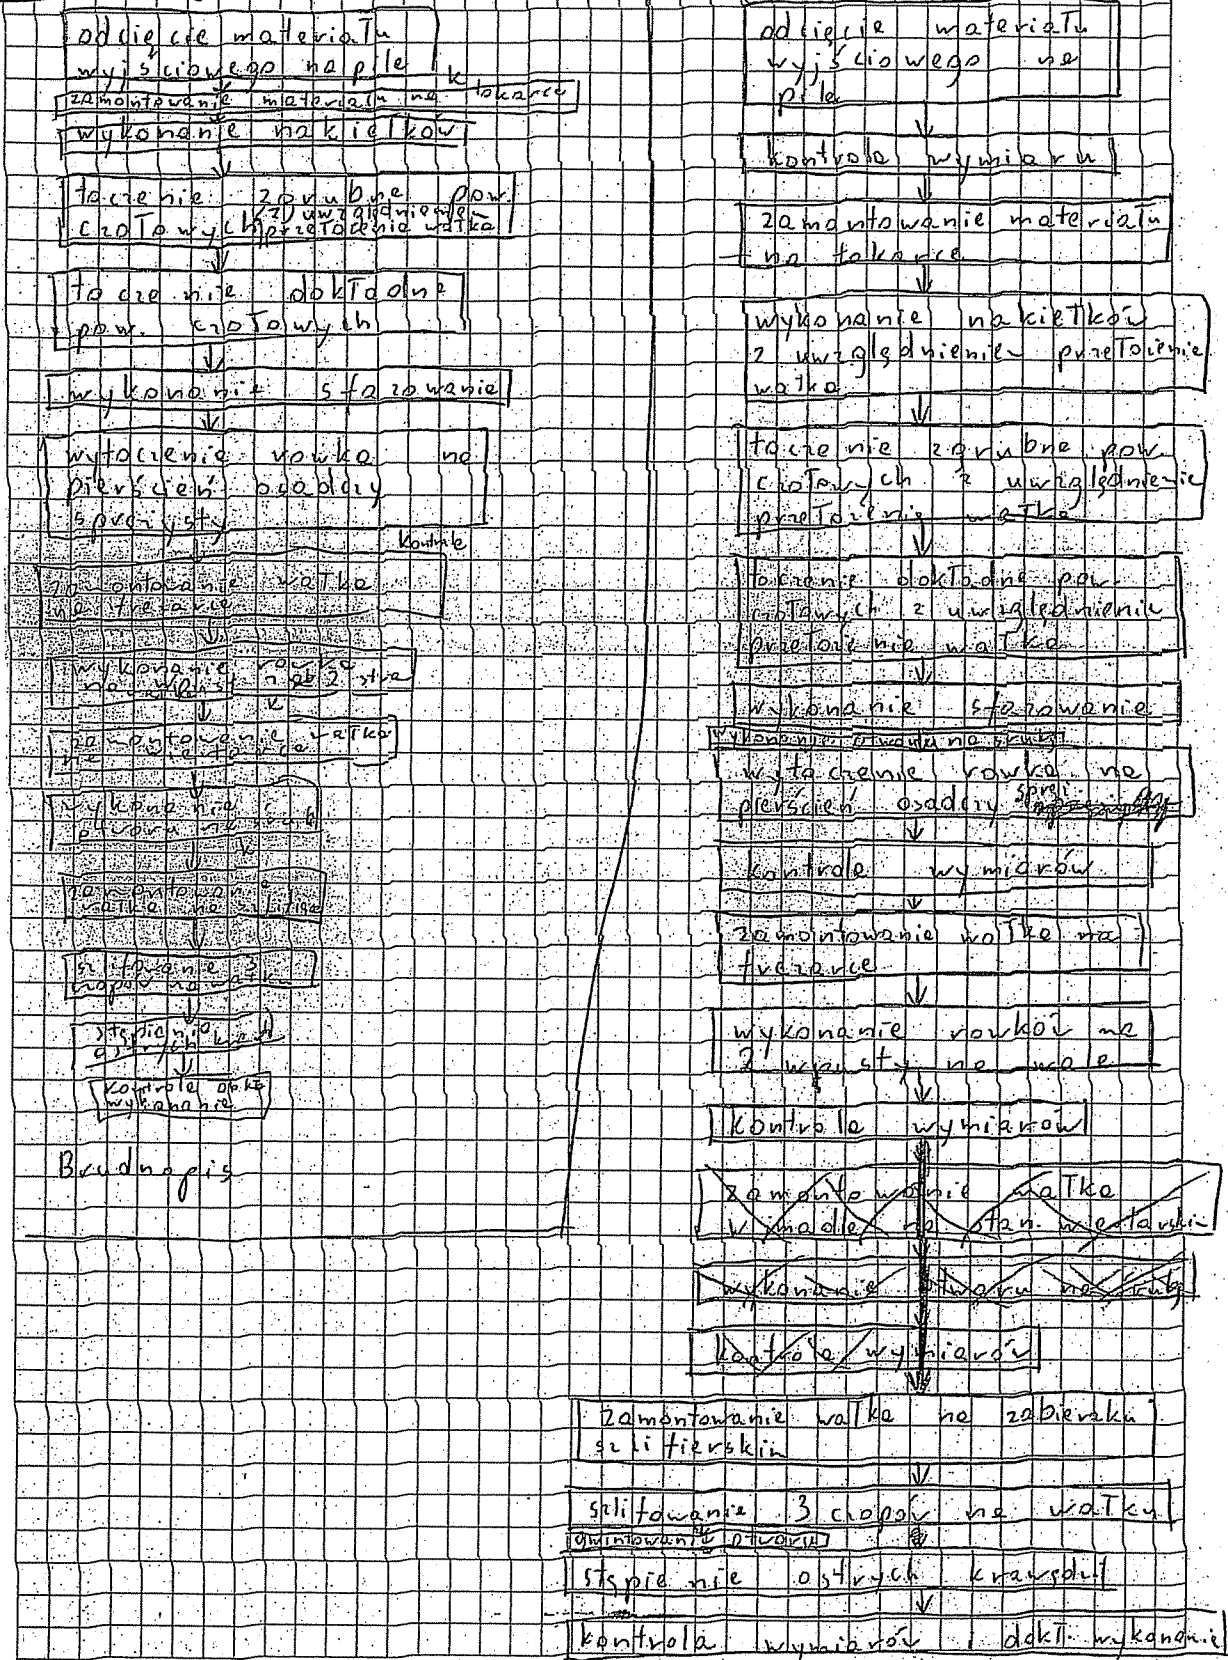 odcięcie materiału
wyjściowego na pile
k
zamontowanie materiału na tokarce
wykonanie nakiełków
toczenie zgrubne pow.
z uwzględnieniem
czołowych przetoczenia wałka
toczenie dokładne
pow. czołowych
wykonanie sfazowania
wytoczenie rowka na
pierścień osadczy
sprężysty
kontrola
zamontowanie wałka
na frezarce
wykonanie rowka
na wpust na 2 stra
k
zamontowanie wałka
na
wykonanie
otworu na śrub
k
zamontowanie
wałka na szlifie
szlifowanie 3
czopów na wałku
stępienie
ostrych kraw
kontrola dokł
wykonania
Brudnopis
odcięcie materiału
wyjściowego na
pile
kontrola wymiaru
zamontowanie materiału
na tokarce
wykonanie nakiełków
z uwzględnieniem przetoczenia
wałka
toczenie zgrubne pow.
czołowych z uwzględnienie
przetoczenia wałka
toczenie dokładne pow.
czołowych z uwzględnieniem
przetoczenia wałka
wykonanie sfazowania
wykonanie otworu na śrubę
wytoczenie rowka na
pierścień osadczy spręż.
kontrola wymiarów
zamontowanie wałka na
frezarce
wykonanie rowków na
2 wpusty na wale
kontrola wymiarów
zamontowanie wałka
w imadle na stan. wiertarski
wykonanie otworu na śrubę
kontrola wymiarów
zamontowanie wałka na zabieraku
szlifierskim
szlifowanie 3 czopów na wałku
gwintowanie otworu
stępienie ostrych krawędzi
kontrola wymiarów i dokł. wykonania